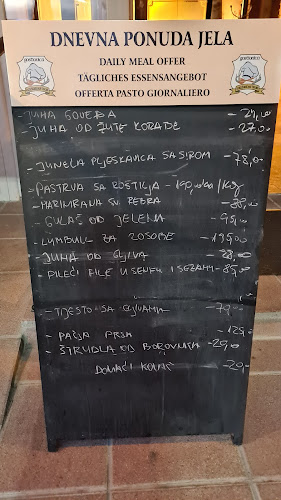 DNEVNA PONUDA JELA
DAILY MEAL OFFER
TÄGLICHES ESSENSANGEBOT
OFFERTA PASTO GIORNALIERO
- JUHA GOVEĐA - 24,00
- JUHA OD ŽUTE KORABE - 27,00
- JUNEĆA PLJESKAVICA SA SIROM - 78,00
- PASTRVA SA ROŠTILJA - 190,00kn/kg
- MARINIRANA SV. REBRA - 85,00
- GULAŠ OD JELENA - 95,00
- ZA 2 OSOBE - 195,00
- JUHA OD GLJIVA - 28,00
- PILEĆI FILE U SENFU I SEZAMU - 85,00
- TIJESTO SA GLJIVAMA - 79,00
- PAČJA PRSA - 129,00
- ŠTRUDLA OD BOROVNICA - 29,00
DOMAĆI KOLAČ - 29,00